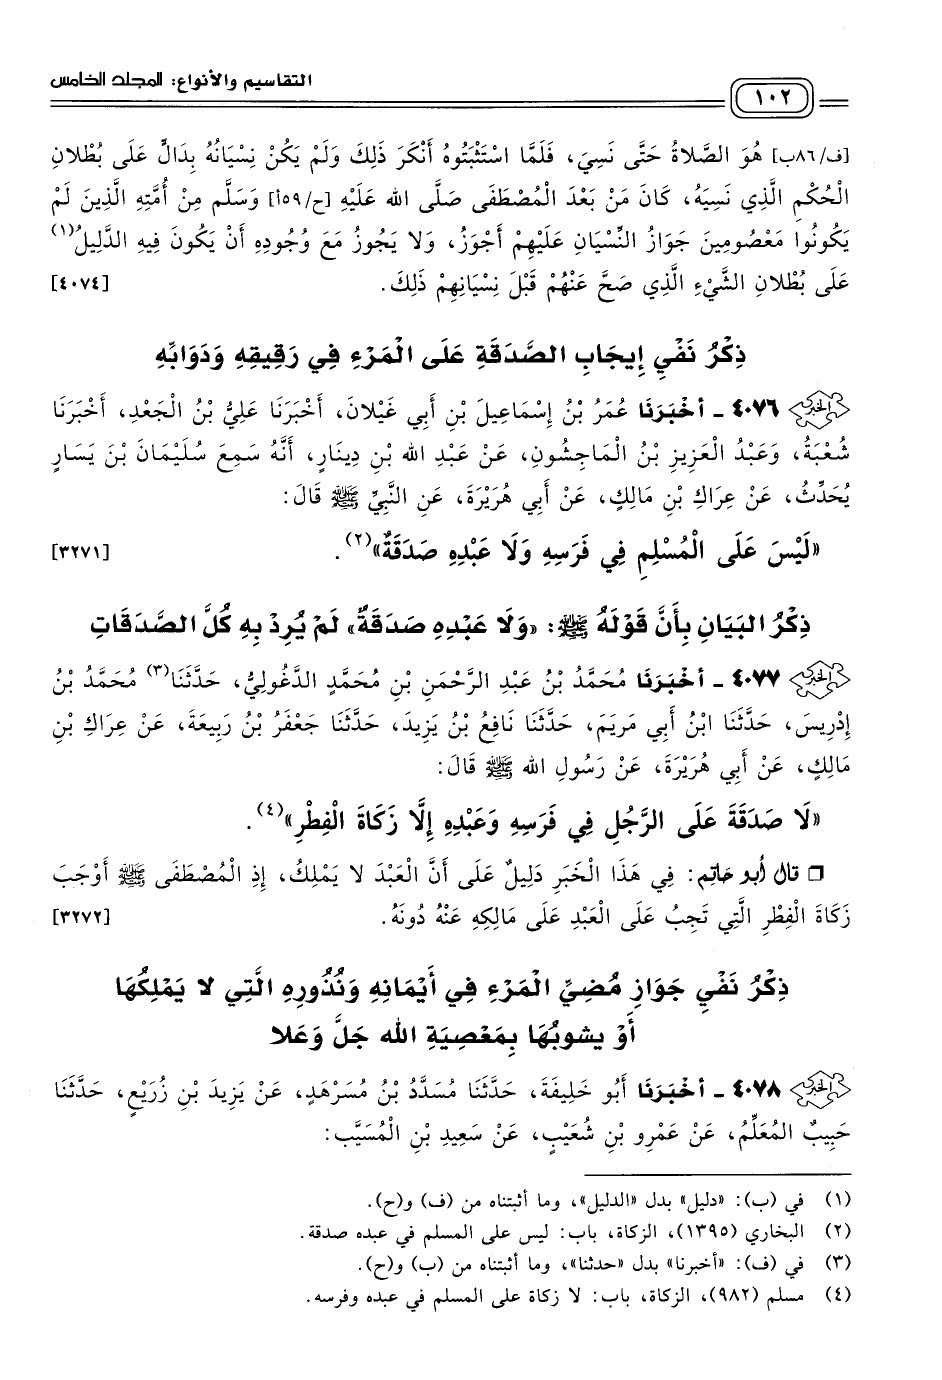 التقاسيم والأنواع: المجلد الخامس
١٠٢
[ف/٨٦ب] هُوَ الصَّلاةُ حَتَّى نَسِيَ، فَلَمَّا اسْتَثْبَتُوهُ أَنْكَرَ ذَلِكَ وَلَمْ يَكُنْ نِسْيَانُهُ بِدَالٍّ عَلَى بُطْلانِ
الْحُكْمِ الَّذِي نَسِيَهُ، كَانَ مَنْ بَعْدَ الْمُصْطَفَى صَلَّى الله عَلَيْهِ [ح/١٥٩] وَسَلَّم مِنْ أُمَّتِهِ الَّذِينَ لَمْ
يَكُونُوا مَعْصُومِينَ جَوَازُ النِّسْيَانِ عَلَيْهِمْ أَجْوَزُ، وَلا يَجُوزُ مَعَ وُجُودِهِ أَنْ يَكُونَ فِيهِ الدَّلِيلُ(١)
عَلَى بُطْلانِ الشَّيْءِ الَّذِي صَحَّ عَنْهُمْ قَبْلَ نِسْيَانِهِمْ ذَلِكَ. [٤٠٧٤]
ذِكْرُ نَفْيِ إِيجَابِ الصَّدَقَةِ عَلَى الْمَرْءِ فِي رَقِيقِهِ وَدَوَابِّهِ
٤٠٧٦ - أَخْبَرَنَا عُمَرُ بْنُ إِسْمَاعِيلَ بْنِ أَبِي غَيْلانَ، أَخْبَرَنَا عَلِيُّ بْنُ الْجَعْدِ، أَخْبَرَنَا
شُعْبَةُ، وَعَبْدُ الْعَزِيزِ بْنُ الْمَاجِشُونِ، عَنْ عَبْدِ الله بْنِ دِينَارٍ، أَنَّهُ سَمِعَ سُلَيْمَانَ بْنَ يَسَارٍ
يُحَدِّثُ، عَنْ عِرَاكِ بْنِ مَالِكٍ، عَنْ أَبِي هُرَيْرَةَ، عَنِ النَّبِيِّ ﷺ قَالَ:
«لَيْسَ عَلَى الْمُسْلِمِ فِي فَرَسِهِ وَلَا عَبْدِهِ صَدَقَةٌ»(٢). [٣٢٧١]
ذِكْرُ البَيَانِ بِأَنَّ قَوْلَهُ ﷺ: «وَلَا عَبْدِهِ صَدَقَةٌ» لَمْ يُرِدْ بِهِ كُلَّ الصَّدَقَاتِ
٤٠٧٧ - أَخْبَرَنَا مُحَمَّدُ بْنُ عَبْدِ الرَّحْمَنِ بْنِ مُحَمَّدٍ الدَّغُولِيُّ، حَدَّثَنَا(٣) مُحَمَّدُ بْنُ
إِدْرِيسَ، حَدَّثَنَا ابْنُ أَبِي مَرْيَمَ، حَدَّثَنَا نَافِعُ بْنُ يَزِيدَ، حَدَّثَنَا جَعْفَرُ بْنُ رَبِيعَةَ، عَنْ عِرَاكِ بْنِ
مَالِكٍ، عَنْ أَبِي هُرَيْرَةَ، عَنْ رَسُولِ الله ﷺ قَالَ:
«لَا صَدَقَةَ عَلَى الرَّجُلِ فِي فَرَسِهِ وَعَبْدِهِ إِلَّا زَكَاةَ الْفِطْرِ»(٤).
❑ قال أبو حاتم: فِي هَذَا الْخَبَرِ دَلِيلٌ عَلَى أَنَّ الْعَبْدَ لا يَمْلِكُ، إِذِ الْمُصْطَفَى ﷺ أَوْجَبَ
زَكَاةَ الْفِطْرِ الَّتِي تَجِبُ عَلَى الْعَبْدِ عَلَى مَالِكِهِ عَنْهُ دُونَهُ. [٣٢٧٢]
ذِكْرُ نَفْيِ جَوَازِ مُضِيِّ الْمَرْءِ فِي أَيْمَانِهِ وَنُذُورِهِ الَّتِي لا يَمْلِكُهَا
أَوْ يشوبُهَا بِمَعْصِيَةِ الله جَلَّ وَعَلا
٤٠٧٨ - أَخْبَرَنَا أَبُو خَلِيفَةَ، حَدَّثَنَا مُسَدَّدُ بْنُ مُسَرْهَدٍ، عَنْ يَزِيدَ بْنِ زُرَيْعٍ، حَدَّثَنَا
حَبِيبٌ الْمُعَلِّمُ، عَنْ عَمْرِو بْنِ شُعَيْبٍ، عَنْ سَعِيدِ بْنِ الْمُسَيَّبِ:
(١) في (ب): «دليل» بدل «الدليل»، وما أثبتناه من (ف) و(ح).
(٢) البخاري (١٣٩٥)، الزكاة، باب: ليس على المسلم في عبده صدقة.
(٣) في (ف): «أخبرنا» بدل «حدثنا»، وما أثبتناه من (ب) و(ح).
(٤) مسلم (٩٨٢)، الزكاة، باب: لا زكاة على المسلم في عبده وفرسه.